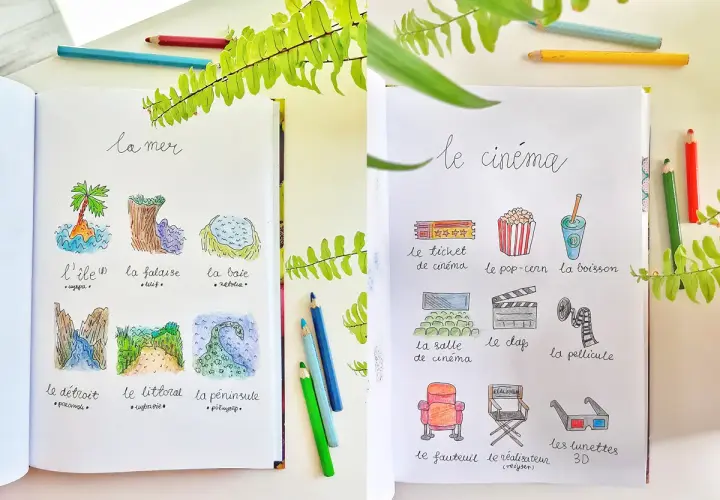 la mer
l'île (f)
la falaise
la baie
le détroit
le littoral
la péninsule
le cinéma
le ticket
de cinéma
le pop-corn
la boisson
la salle
de cinéma
le clap
la pellicule
le fauteuil
le réalisateur
les lunettes
3D